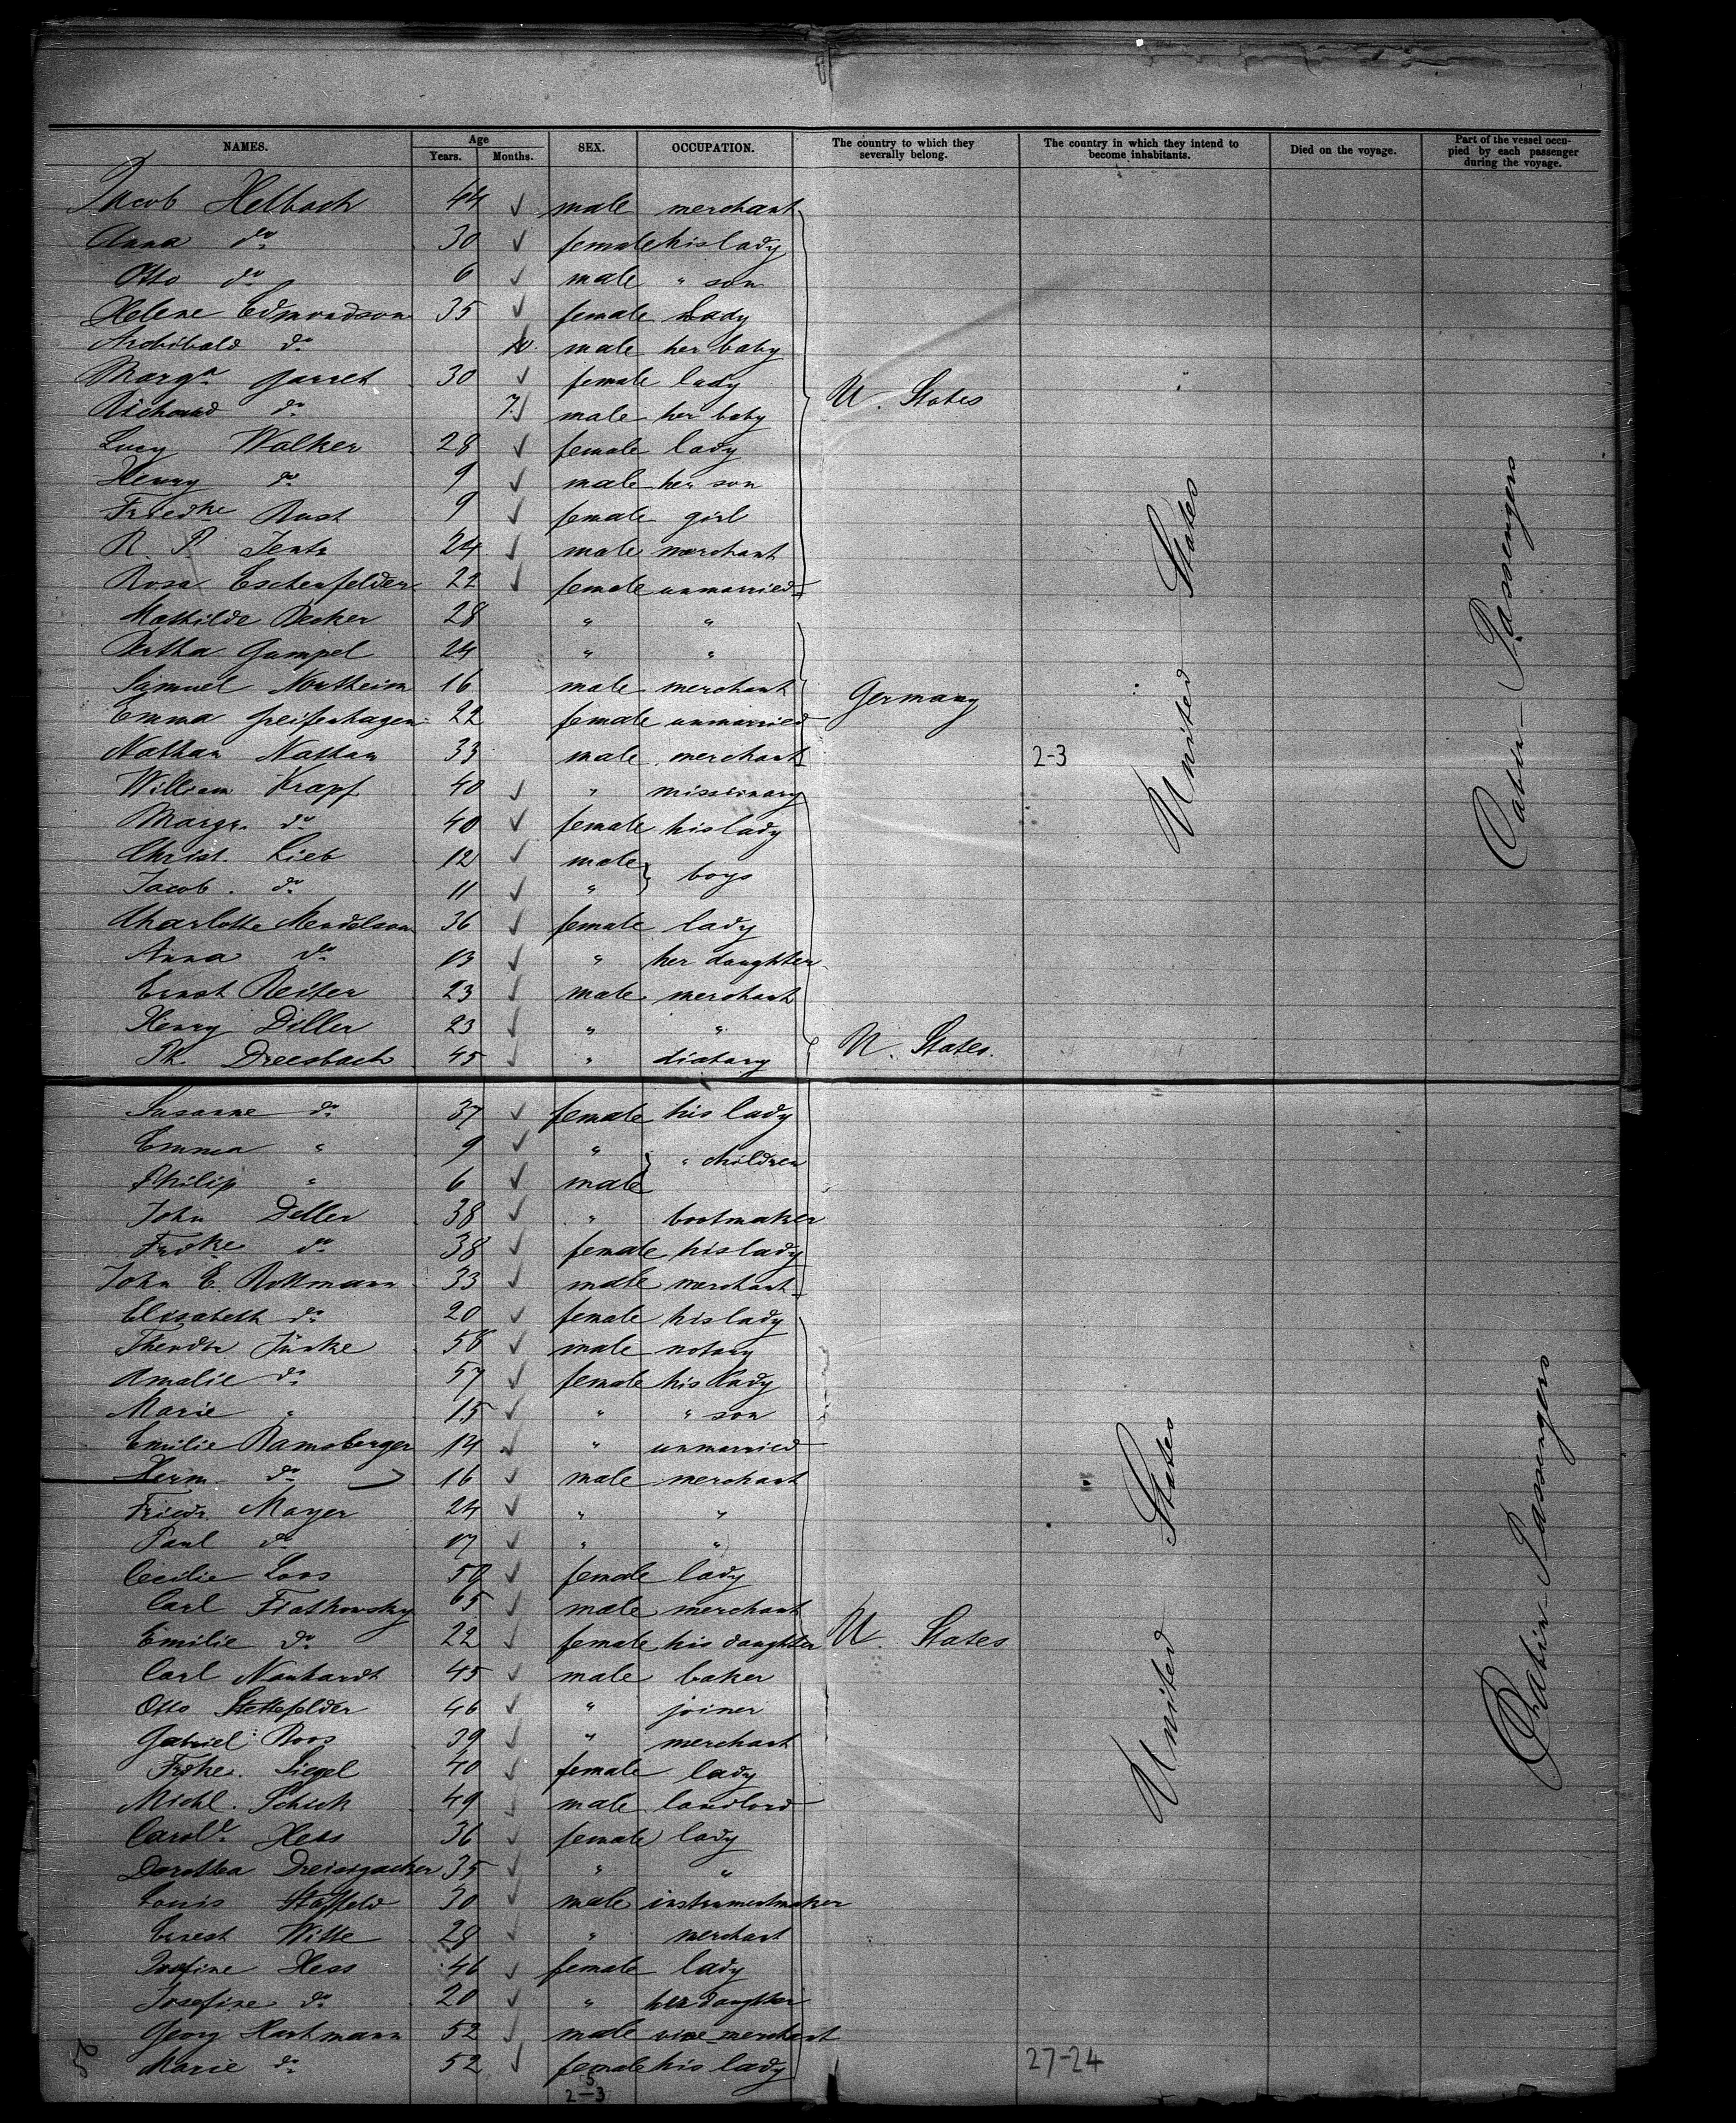 NAMES. Age Years. Months. SEX. OCCUPATION. The country to which they severally belong. The country in which they intend to become inhabitants. Died on the voyage. Part of the vessel occupied by each passenger during the voyage.
Jacob Helbach 44 ✓ male merchant
Anna do 30 ✓ female his lady
Otto do 6 ✓ male " son
Helene Edmondson 35 ✓ female Lady
Archibald do male her baby
Marga. Garret 30 ✓ female lady
Richard do 7 ✓ male her baby U. States
Lucy Walker 28 ✓ female lady
Henry do 9 ✓ male her son
Friedke Rust 9 ✓ female girl
R. P. Jentz 24 ✓ male merchant
Rosa Eschenfelder 22 ✓ female unmarried
Mathilde Becker 28 " "
Bertha Gumpel 24 " "
Samuel Northeim 16 male merchant
Emma Greifenhagen 22 female unmarried Germany
Nathan Nathan 33 male merchant 2-3
William Krapf 40 ✓ " missionary
Margr. do 40 ✓ female his lady
Christ. Lieb 12 ✓ male boys
Jacob. do 11 ✓ "
Charlotte Mendelson 36 ✓ female lady
Anna do 13 ✓ " her daughter
Ernst Reiter 23 ✓ male merchant
Henry Diller 23 ✓ " "
Ph. Dreesbach 45 ✓ " U. States.
Susanne do 37 ✓ female his lady
Emma " 9 ✓ " " children
Philip " 6 ✓ male
John Deller 38 ✓ " bootmaker
Frdke do 38 ✓ female his lady
John E. Rottmann 33 ✓ male merchant
Elisabeth do 20 ✓ female his lady
Theodor Jünke 58 ✓ male notary
Amalie do 57 ✓ female his lady
Marie " 15 ✓ " " son
Emilie Ramsberger 14 ✓ " unmarried
Herm. do 16 ✓ male merchant
Friedr. Mayer 24 ✓ " "
Paul do 17 ✓ " "
Cecilie Loos 59 ✓ female lady
Carl Fiatkowsky 65 ✓ male merchant
Emilie do 22 ✓ female his daughter U. States
Carl Nanhardt 45 ✓ male baker
Otto Stettefelder 46 ✓ " joiner
Gabriel Roos 39 ✓ " merchant
Frdke. Siegel 40 ✓ female lady
Michl. Schick 49 ✓ male landlord
Carole. Hess 36 ✓ female lady
Dorothea Dreisigacker 35 ✓ " "
Louis Staffeld 30 ✓ male instrumentmaker
Ernest Witte 28 ✓ " merchant
Josefine Hess 46 ✓ female lady
Josefine do 20 ✓ " her daughter
Georg Hartmann 52 ✓ male vine-merchant
Marie do 52 ✓ female his lady 27-24
5
2-3
25
United States
Cabin-Passengers
United States
Cabin-Passengers